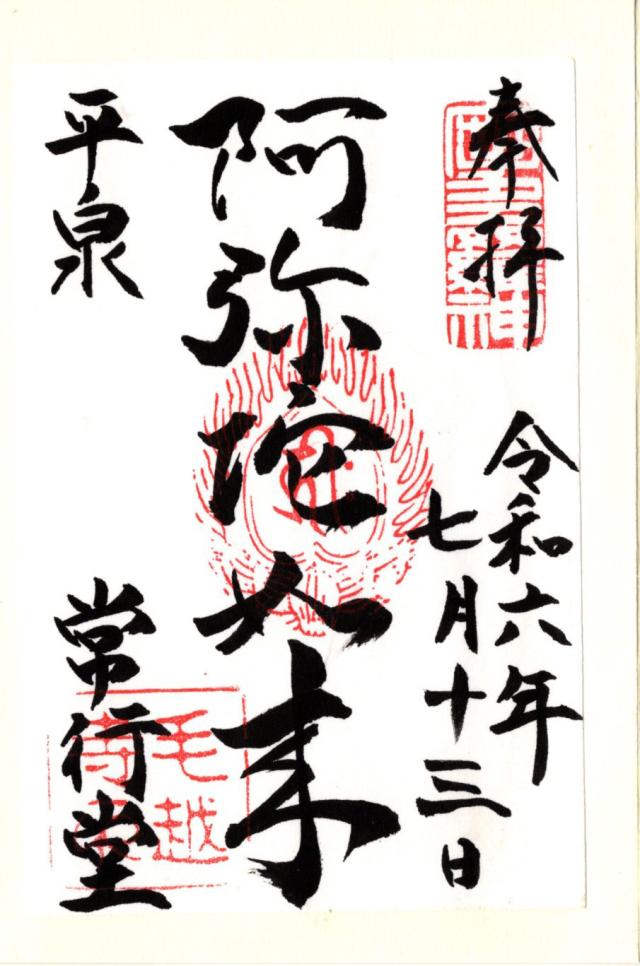 奉拝
令和六年
七月十三日
阿弥陀如来
平泉
常行堂
毛越